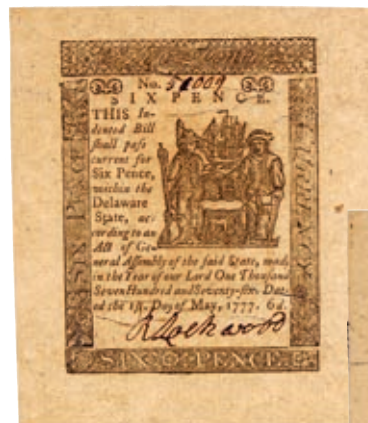 No. 51009
SIXPENCE.
THIS In-
dented Bill
ſhall paſs
current for
Six Pence,
within the
Delaware
State, ac-
cording to an
Act of Ge-
neral Aſſembly of the ſaid State, made
in the Year of our Lord One Thouſand
Seven Hundred and Seventy-ſix. Dat-
ed the 1ſt. Day of May, 1777. 6d.
R Lockwood
SIX PENCE
SIX PENCE